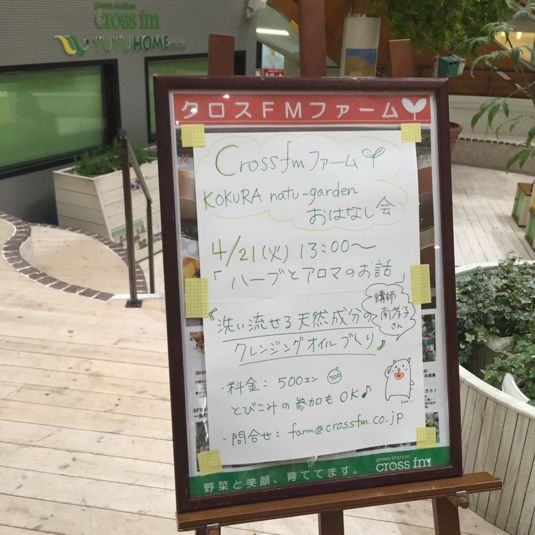 green station
cross fm
YUYU HOME
クロスFMファーム
Crossfmファーム
KOKURA natu-garden
おはなし会
4/21(火) 13:00〜
「ハーブとアロマのお話
『洗い流せる天然成分の
クレンジングオイルづくり』
講師
南孝子
さん
・料金: 500エン
500
とびこみの参加もOK♪
・問合せ: farm@crossfm.co.jp
green station
cross fm
野菜と笑顔、育ててます。